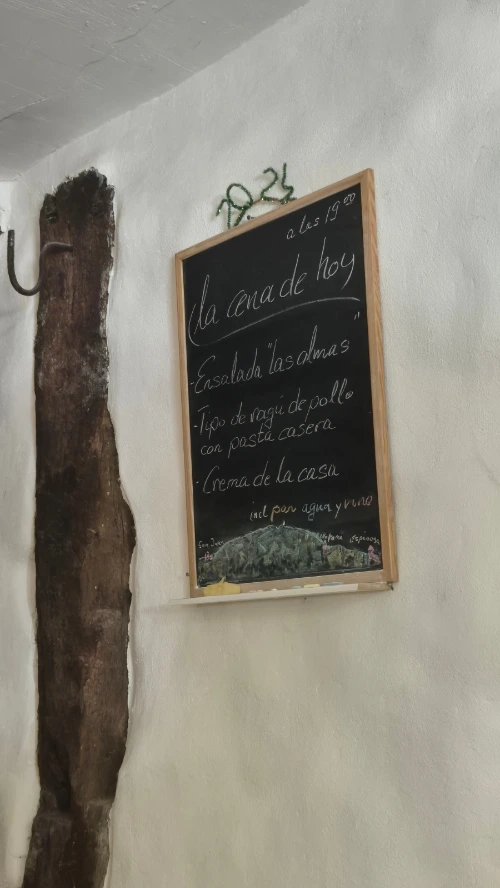 2025
a las 19⁰⁰
la cena de hoy
- Ensalada "las almas"
- Tipo de ragú de pollo
con pasta casera
- Crema de la casa
incl pan agua y vino
San Juan
Espinosa